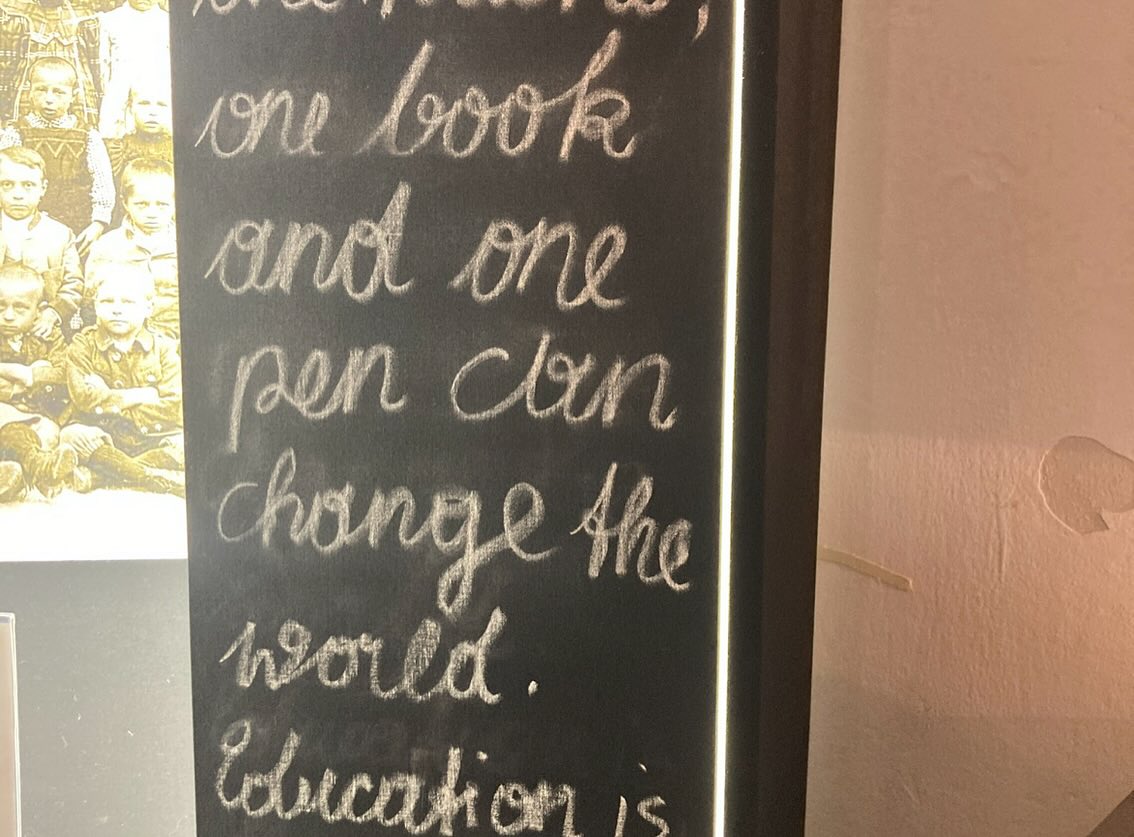 one book
and one
pen can
change the
world.
Education is